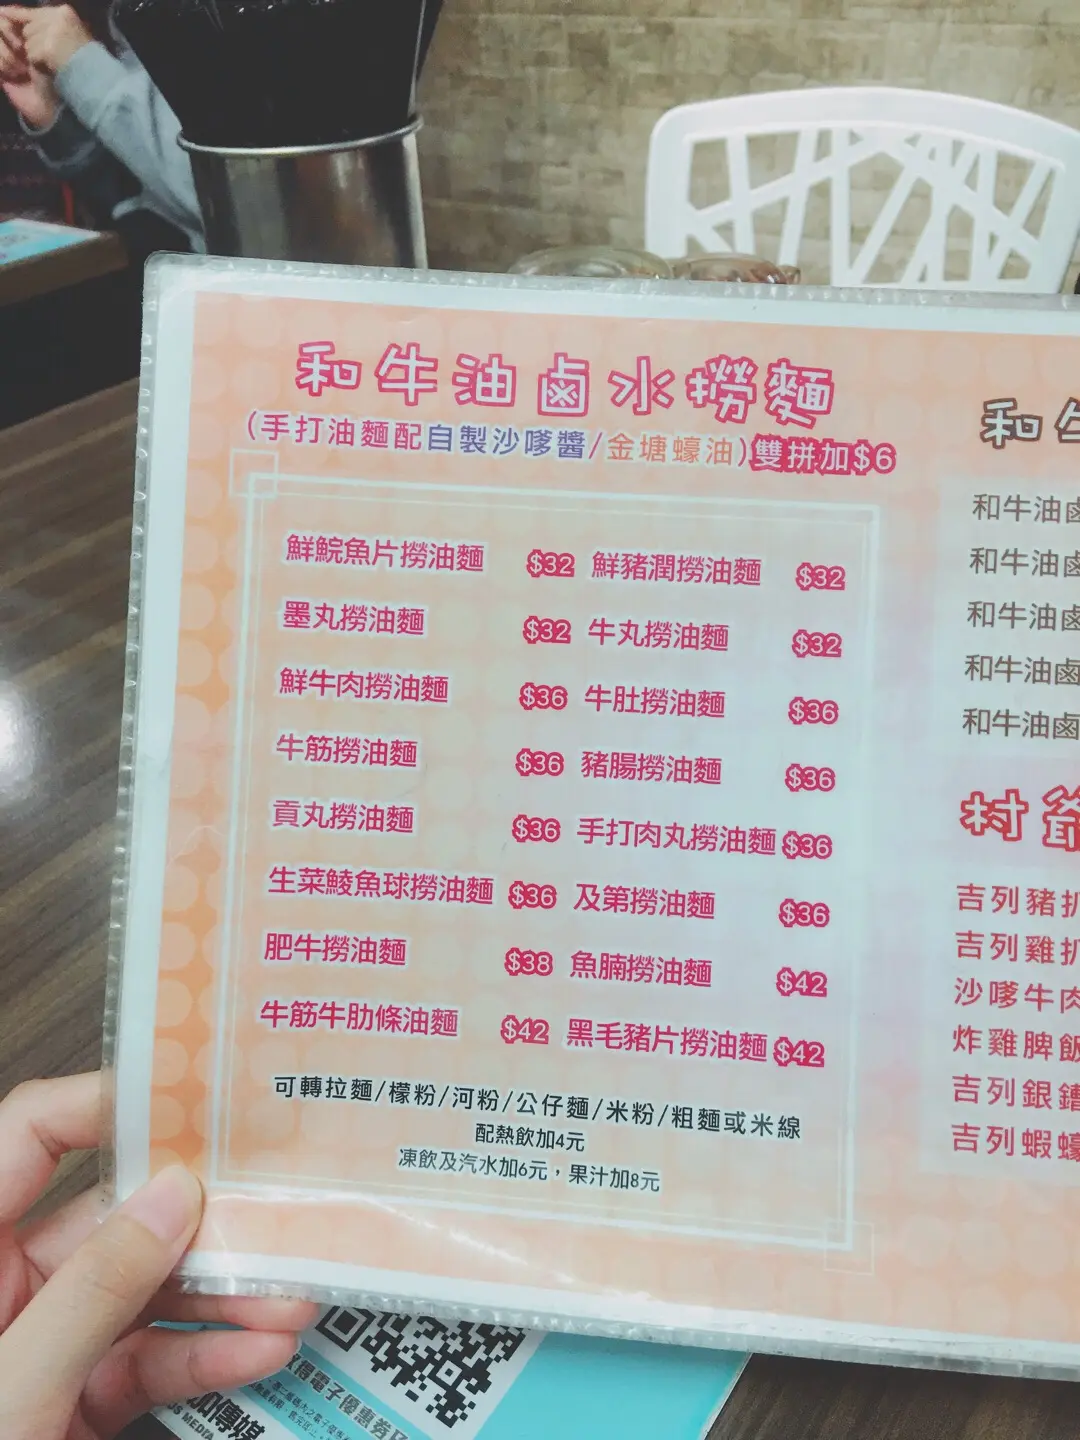 和牛油鹵水撈麵
(手打油麵配自製沙嗲醬/金塘蠔油)雙拼加$6
鮮鯇魚片撈油麵 $32 鮮豬潤撈油麵 $32
墨丸撈油麵 $32 牛丸撈油麵 $32
鮮牛肉撈油麵 $36 牛肚撈油麵 $36
牛筋撈油麵 $36 豬腸撈油麵 $36
貢丸撈油麵 $36 手打肉丸撈油麵 $36
生菜鯪魚球撈油麵 $36 及第撈油麵 $36
肥牛撈油麵 $38 魚腩撈油麵 $42
牛筋牛肋條油麵 $42 黑毛豬片撈油麵 $42
可轉拉麵/檬粉/河粉/公仔麵/米粉/粗麵或米線
配熱飲加4元
凍飲及汽水加6元，果汁加8元
和牛
和牛油鹵
和牛油鹵
和牛油鹵
和牛油鹵
和牛油鹵
村爺
吉列豬扒
吉列雞扒
沙嗲牛肉
炸雞脾飯
吉列銀鱈
吉列蝦蠔
電子優惠券
傳媒
MEDIA